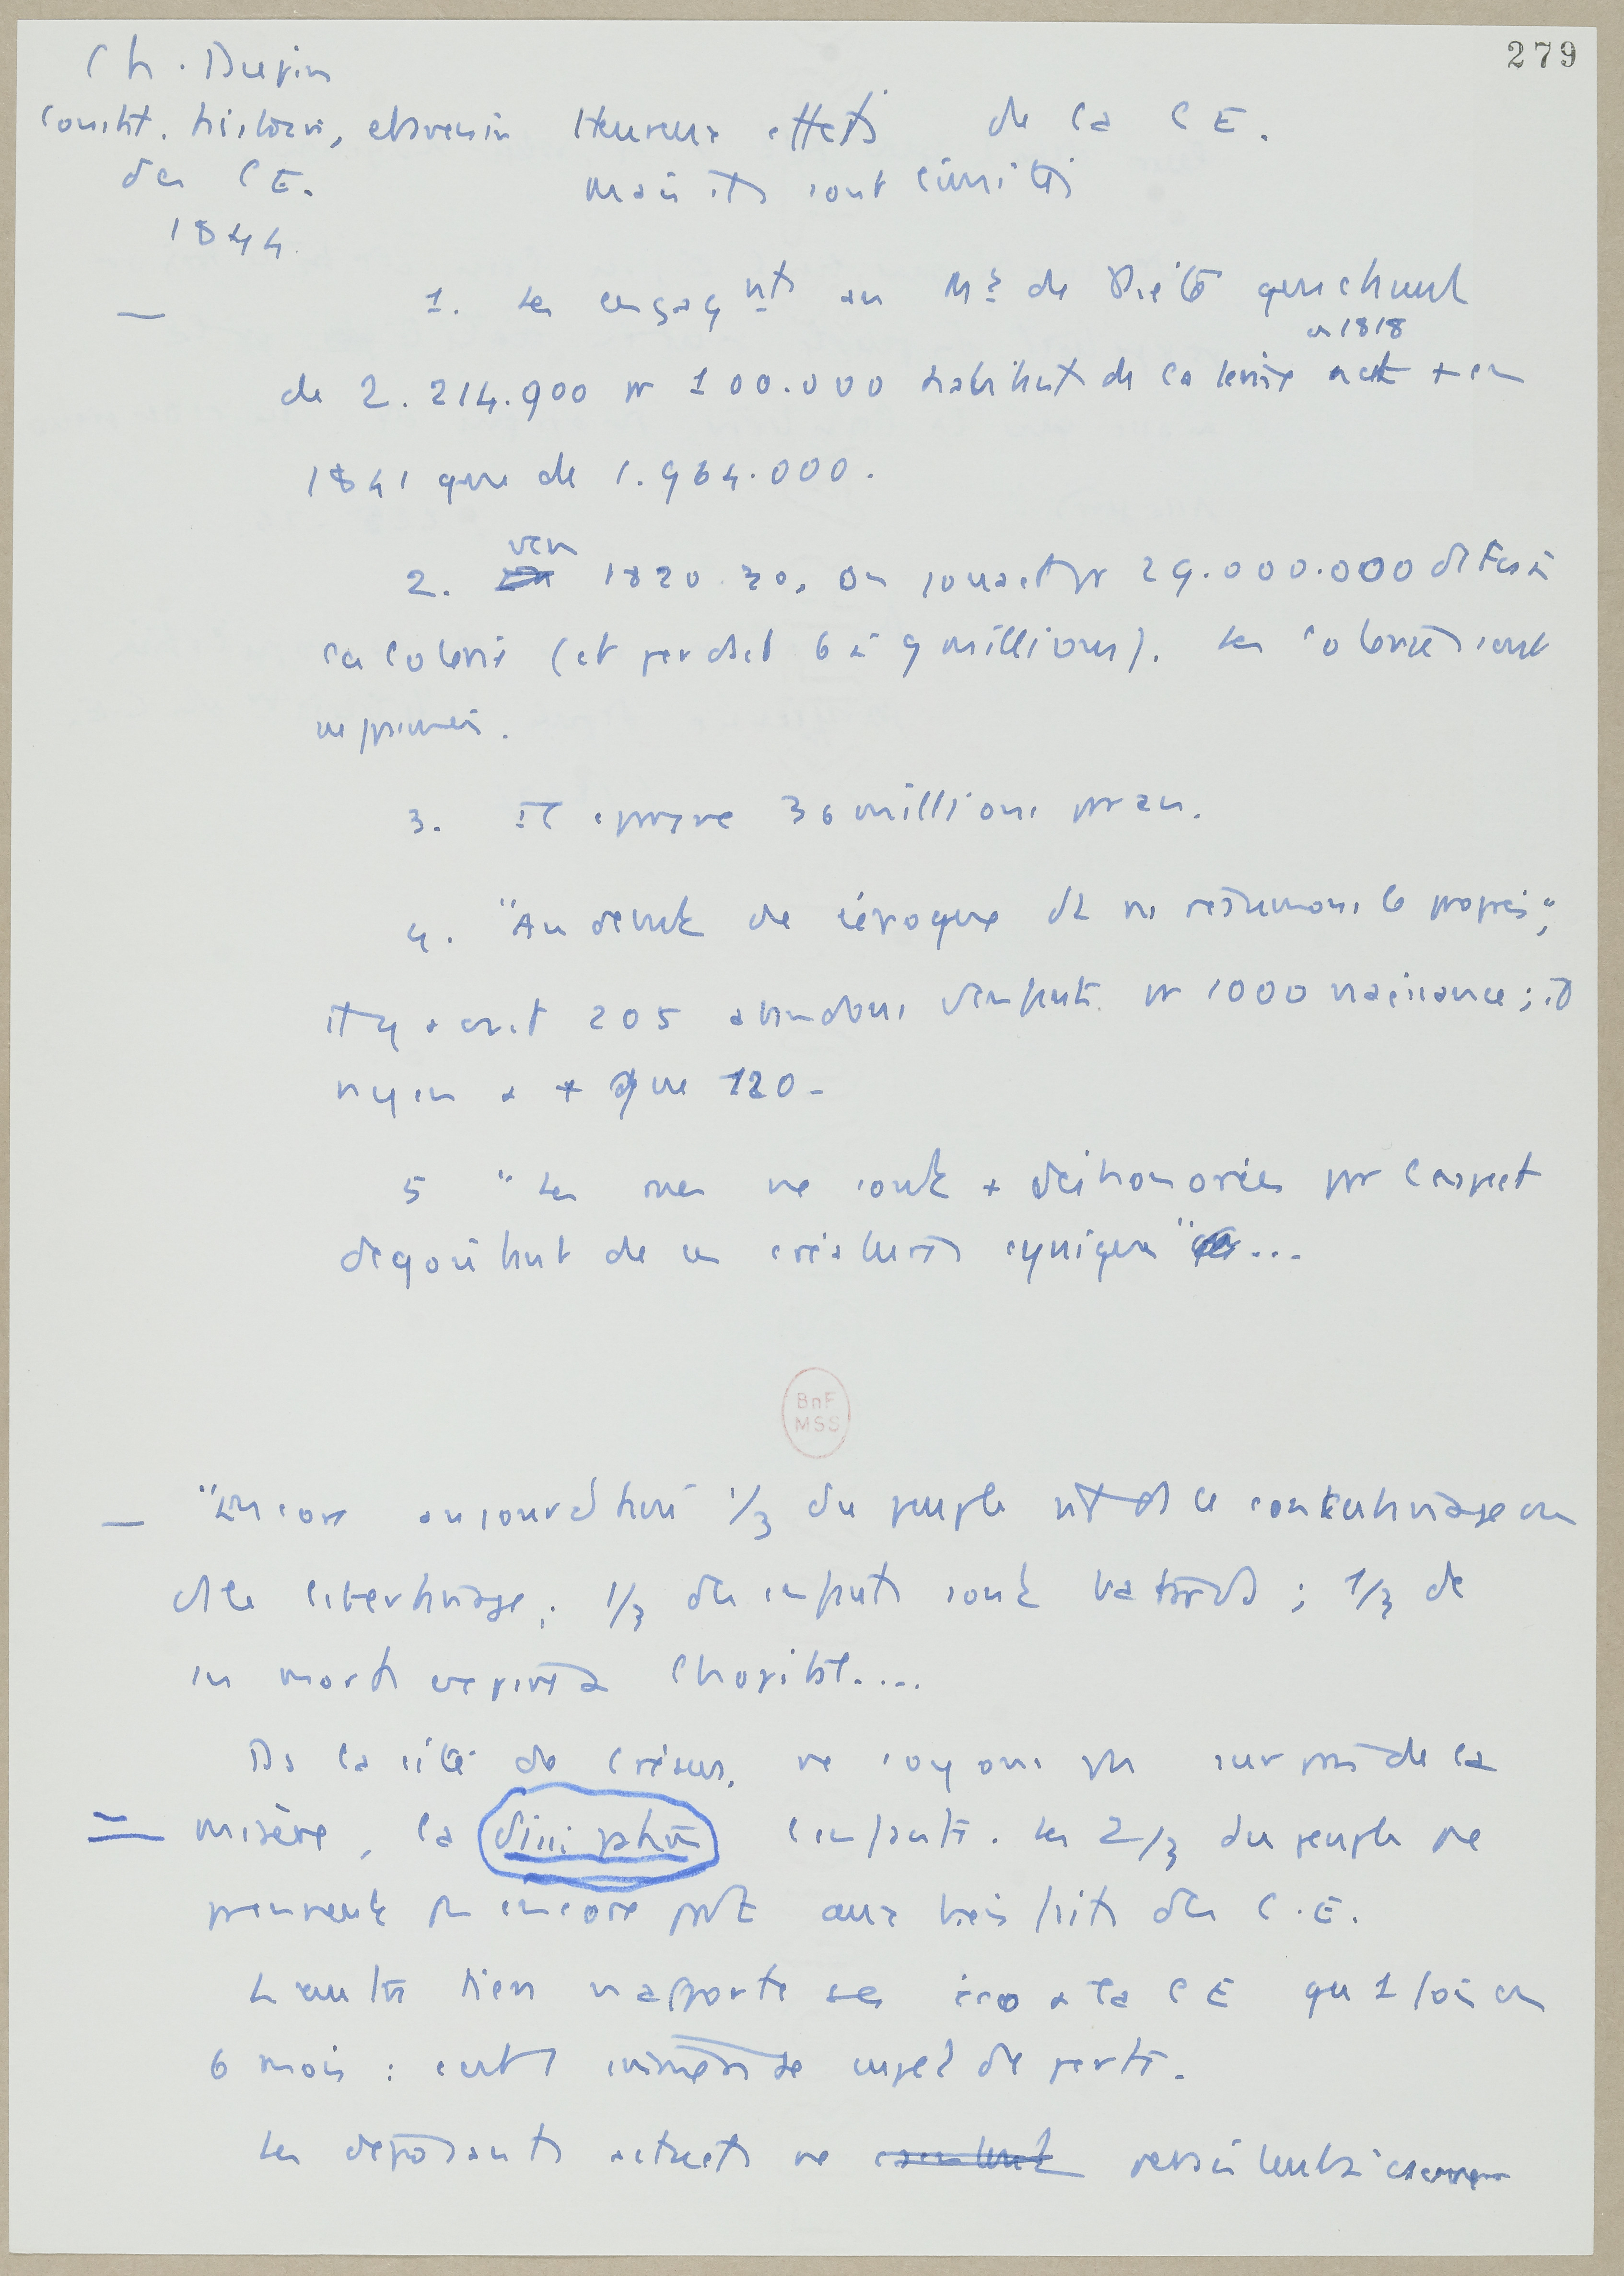 279
Ch. Dupin
Constit. histoire, et avenir
des CE.
1844
Heureux effets de la CE.
mais ils sont limités
1. Les engagnts au Mt de Piété qui étaient
en 1818
de 2.214.900 pr 100.000 habitants de la loterie + en
1841 que de 1.964.000.
vers
2. 1820-30, on jouait pr 29.000.000 de Frs à
la loterie (et perdait 6 à 9 millions). Les loteries sont
supprimées.
3. Il épargne 36 millions par an.
4. "Au début de l'époque dt ns résumons le progrès",
il y avait 205 abandons d'enfants pr 1000 naissances ; il
n'y en a + que 120-
5 "Les rues ne sont + déshonorées par l'aspect
dégoûtant de ces créatures cyniques" ...
BnF
MSS
— "Encore aujourd'hui 1/3 du peuple vit ds le concubinage ou
ds le libertinage ; 1/3 des enfants sont bâtards ; 1/3 de
ses morts expirent à l'hôpital....
Ds la cité de Crésus, ne soyons pas surpris de la
misère, la l'enfants. Les 2/3 du peuple ne
prennent pas encore part aux bienfaits des C.E.
L'ouvrier n'apporte ses éco à la CE qu'1 fois en
6 mois : sujet de perte.
Les déposants actuels ne